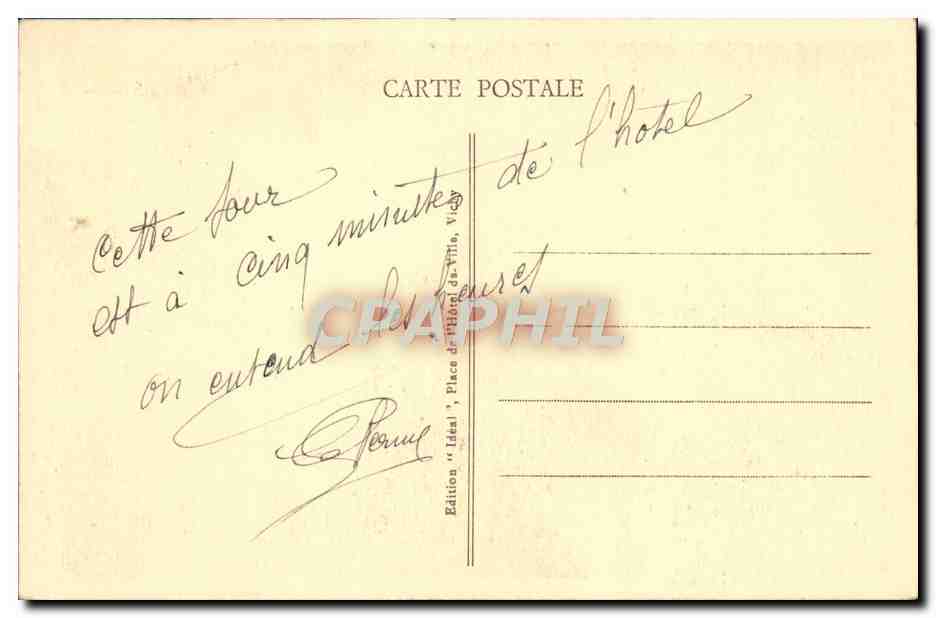 CARTE POSTALE
cette tour
est à cinq minutes de l'hôtel
on entend les heures
Edition "Idéal", Place de l'Hôtel-de-Ville, Vichy
CPAPHIL